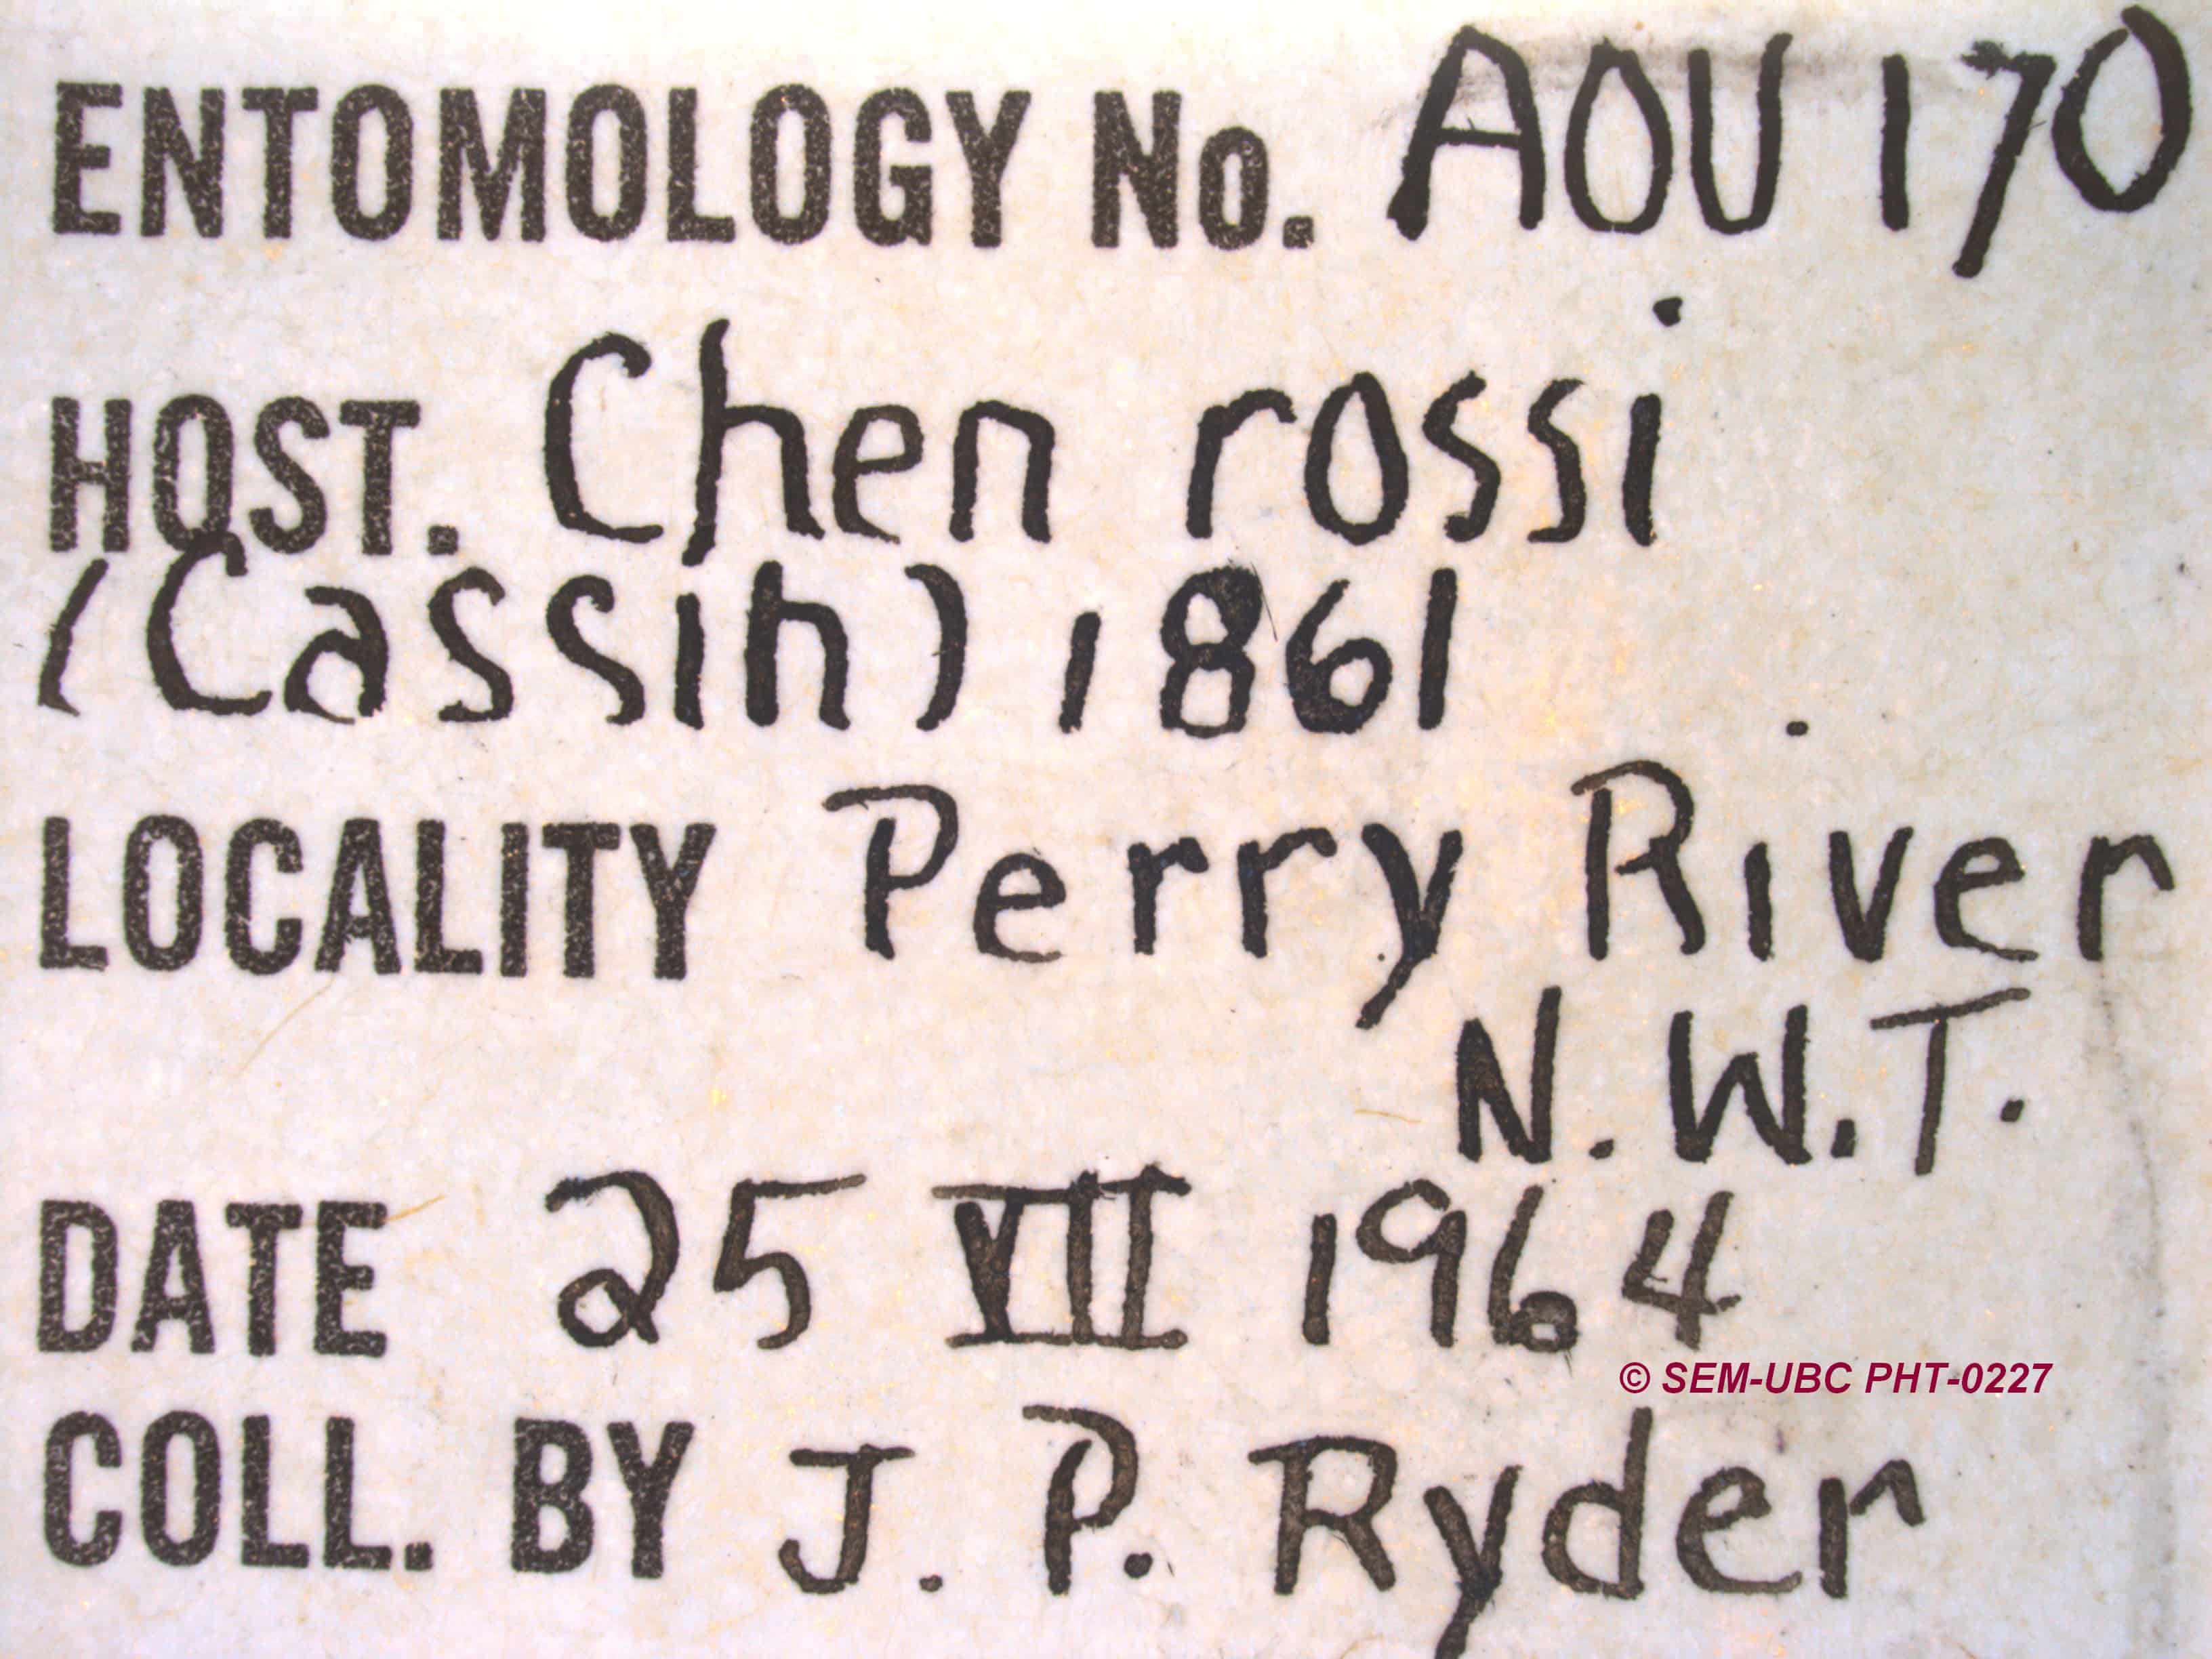 ENTOMOLOGY No. AOU 170
HOST. Chen rossi
(Cassin) 1861
LOCALITY Perry River
N.W.T.
DATE 25 VII 1964
© SEM-UBC PHT-0227
COLL. BY J. P. Ryder